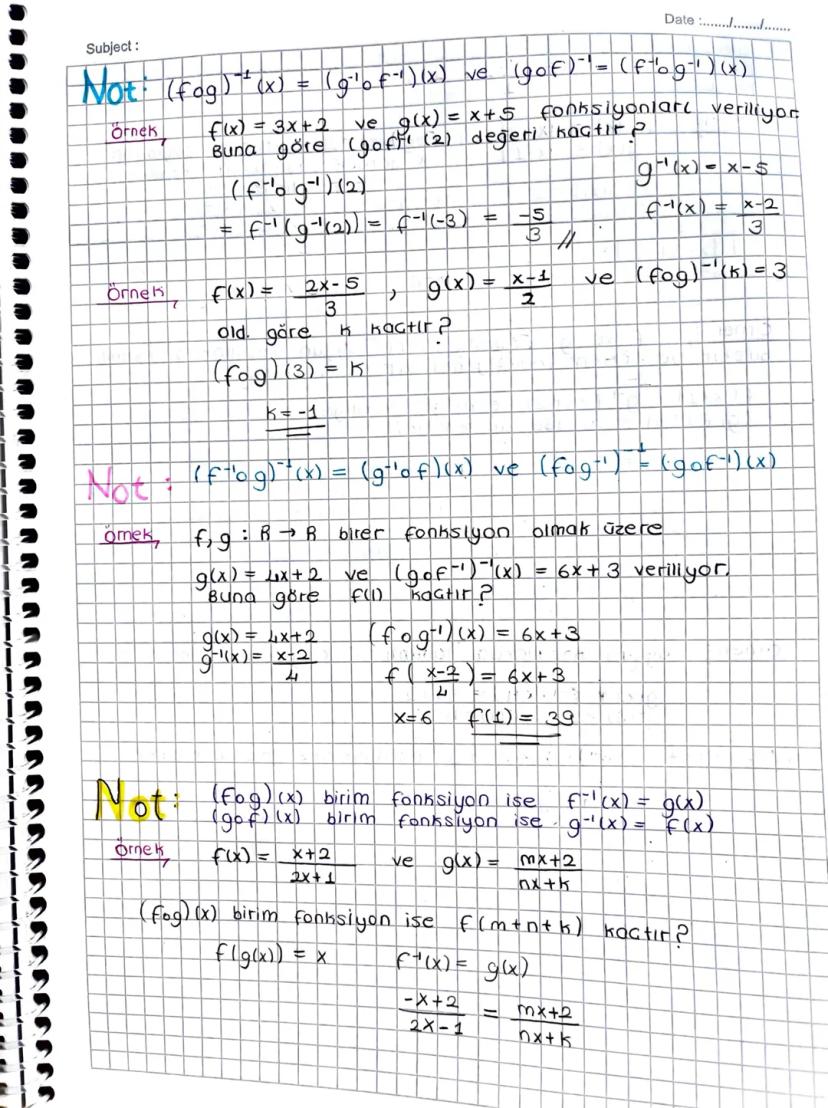 Date :......./......./.......
Subject :
Not: (fog)⁻¹(x) = (g⁻¹o f⁻¹)(x) ve (gof)⁻¹ = (f⁻¹o g⁻¹)(x)
Örnek, f(x) = 3x+2 ve g(x) = x+5 fonksiyonları veriliyor.
Buna göre (gof)⁻¹(2) değeri kaçtır?
g⁻¹(x) = x-5
(f⁻¹o g⁻¹)(2)
f⁻¹(x) = (x-2)/3
= f⁻¹(g⁻¹(2)) = f⁻¹(-3) = -5/3 //
Örnek, f(x) = (2x-5)/3 , g(x) = (x-1)/2 ve (fog)⁻¹(k) = 3
old. göre k kaçtır?
(fog)(3) = k
k = -1
Not : (f⁻¹og)⁻¹(x) = (g⁻¹of)(x) ve (fog⁻¹)⁻¹ = (gof⁻¹)(x)
Örnek, f,g : R → R birer fonksiyon olmak üzere
g(x) = 4x+2 ve (gof⁻¹)⁻¹(x) = 6x+3 veriliyor.
Buna göre f(1) kaçtır?
g(x) = 4x+2 (fog⁻¹)(x) = 6x+3
g⁻¹(x) = (x-2)/4
f((x-2)/4) = 6x+3
x=6 f(1) = 39
Not: (fog)(x) birim fonksiyon ise f⁻¹(x) = g(x)
(gof)(x) birim fonksiyon ise g⁻¹(x) = f(x)
Örnek, f(x) = (x+2)/(2x+1) ve g(x) = (mx+2)/(nx+k)
(fog)(x) birim fonksiyon ise f(m+n+k) kaçtır?
f(g(x)) = x f⁻¹(x) = g(x)
(-x+2)/(2x-1) = (mx+2)/(nx+k)